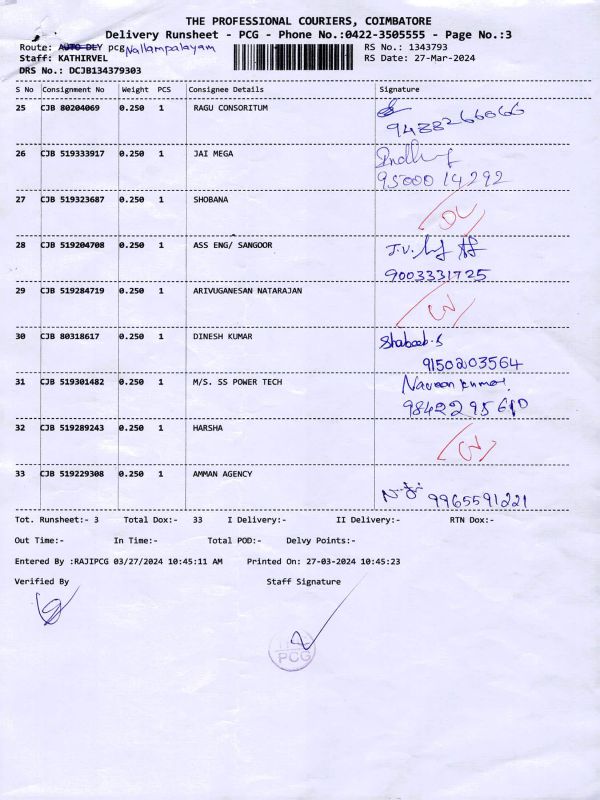 THE PROFESSIONAL COURIERS, COIMBATORE
Delivery Runsheet - PCG - Phone No.:0422-3505555 - Page No.:3
Route: AUTO DLY pcg Nallampalayam RS No.: 1343793
Staff: KATHIRVEL RS Date: 27-Mar-2024
DRS No.: DCJB134379303
S No Consignment No Weight PCS Consignee Details Signature
25 CJB 80204069 0.250 1 RAGU CONSORITUM
9488266066
26 CJB 519333917 0.250 1 JAI MEGA
9500014292
27 CJB 519323687 0.250 1 SHOBANA
DL
28 CJB 519204708 0.250 1 ASS ENG/ SANGOOR J.V.
9003331725
29 CJB 519284719 0.250 1 ARIVUGANESAN NATARAJAN
30 CJB 80318617 0.250 1 DINESH KUMAR Shabeeb.S
9150203564
31 CJB 519301482 0.250 1 M/S. SS POWER TECH Naveen kumar.
9842295610
32 CJB 519289243 0.250 1 HARSHA
33 CJB 519229308 0.250 1 AMMAN AGENCY
9965591221
Tot. Runsheet:- 3 Total Dox:- 33 I Delivery:- II Delivery:- RTN Dox:-
Out Time:- In Time:- Total POD:- Delvy Points:-
Entered By :RAJIPCG 03/27/2024 10:45:11 AM Printed On: 27-03-2024 10:45:23
Verified By Staff Signature
PCG